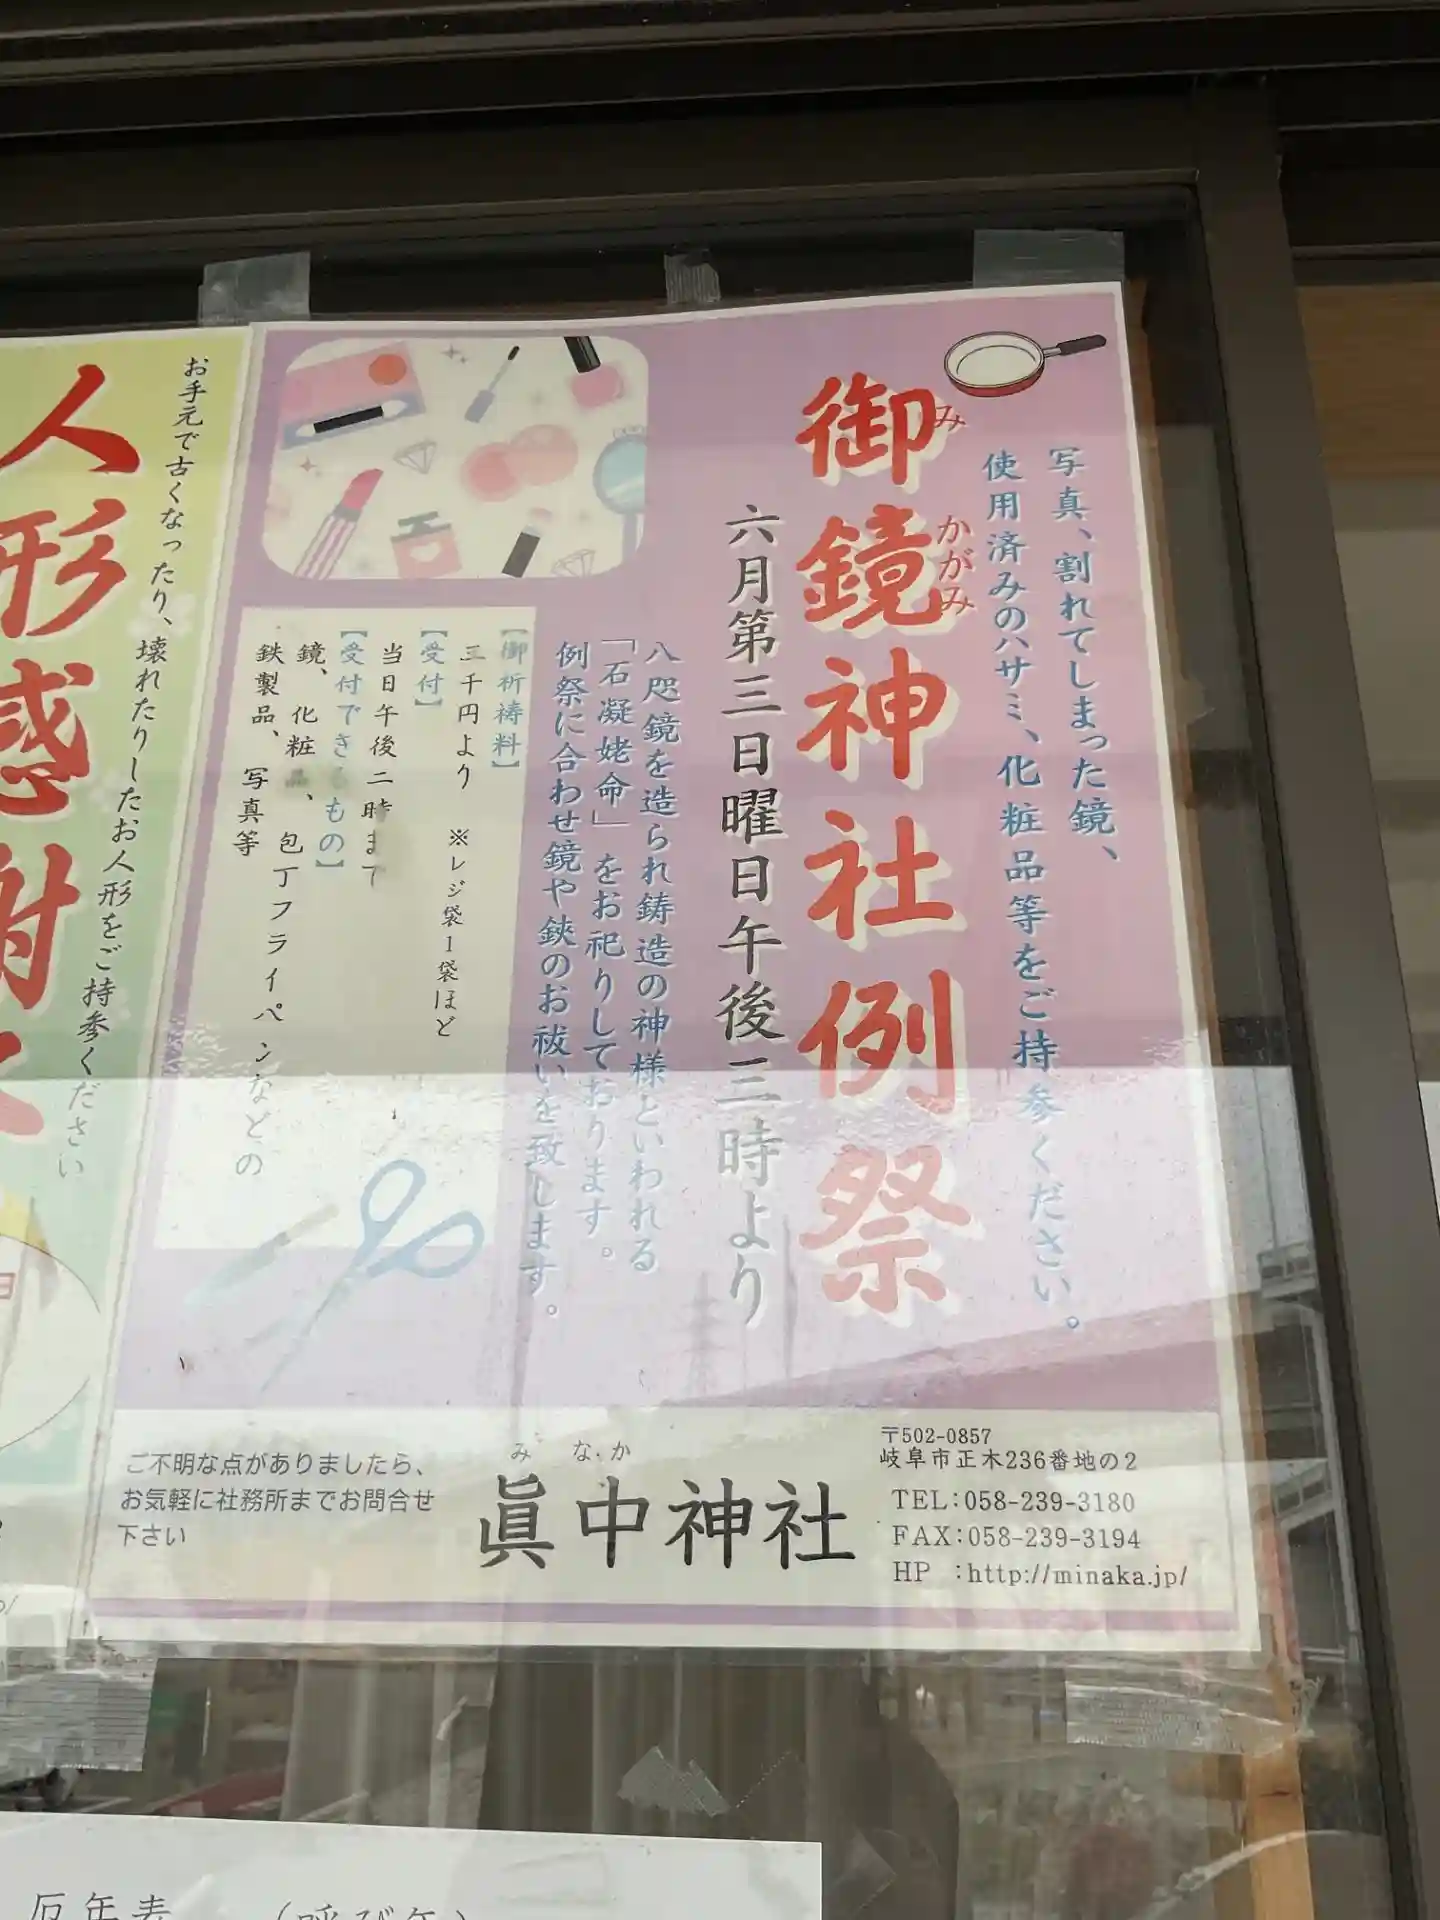 写真、割れてしまった鏡、
使用済みのハサミ、化粧品等をご持参ください。
御鏡神社例祭
み かがみ
六月第三日曜日午後三時より
八咫鏡を造られ鋳造の神様といわれる
「石凝姥命」をお祀りしております。
例祭に合わせ鏡や鋏のお祓いを致します。
【御祈祷料】
三千円より ※レジ袋1袋ほど
【受付】
当日午後二時まで
【受付できるもの】
鏡、化粧品、包丁フライパンなどの
鉄製品、写真等
ご不明な点がありましたら、
お気軽に社務所までお問合せ
下さい
み な か
眞中神社
〒502-0857
岐阜市正木236番地の2
TEL:058-239-3180
FAX:058-239-3194
HP :http://minaka.jp/
お手元で古くなったり、壊れたりしたお人形をご持参ください
人形感謝
日
厄年表 (呼び年)